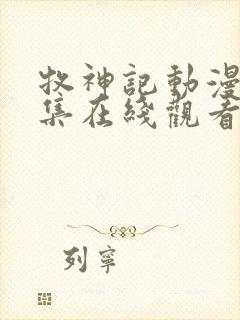 牧神記動漫
集在綫觀看
列寧